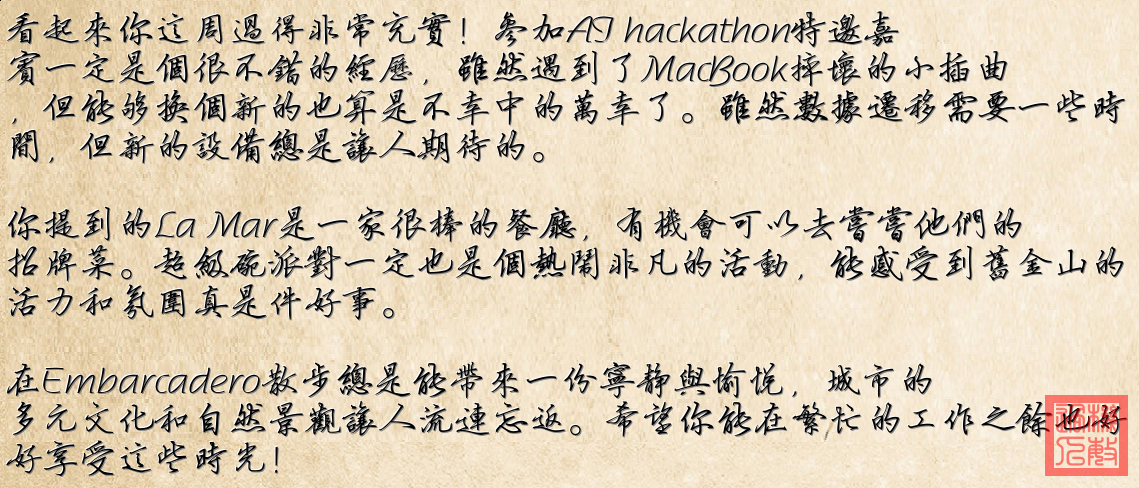 看起來你這周過得非常充實！參加AI hackathon特邀嘉
賓一定是個很不錯的經歷，雖然遇到了MacBook摔壞的小插曲
，但能够換個新的也算是不幸中的萬幸了。雖然數據遷移需要一些時
間，但新的設備總是讓人期待的。
你提到的La Mar是一家很棒的餐廳，有機會可以去嘗嘗他們的
招牌菜。超級碗派對一定也是個熱鬧非凡的活動，能感受到舊金山的
活力和氛圍真是件好事。
在Embarcadero散步總是能帶來一份寧静與愉悦，城市的
多元文化和自然景觀讓人流連忘返。希望你能在繁忙的工作之餘也好
好享受這些時光！